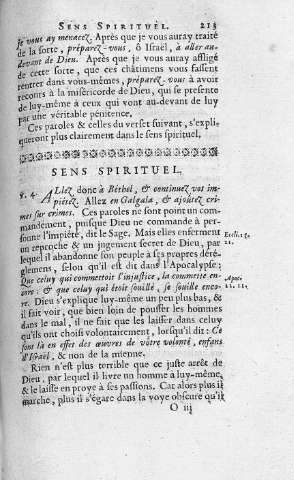 SENS SPIRITUEL. 213
je vous ay menacez. Après que je vous auray traité
de la sorte, préparez-vous, ô Israël, à aller au-
devant de Dieu. Après que je vous auray affligé
de cette sorte, que ces châtimens vous fassent
rentrer dans vous-mêmes, préparez-vous à avoir
recours à la miséricorde de Dieu, qui se presente
de luy-même à ceux qui vont au-devant de luy
par une véritable pénitence.
Ces paroles & celles du verset suivant, s'expli-
queront plus clairement dans le sens spirituel.
SENS SPIRITUEL.
v. 4. Allez donc à Béthel, & continuez vos im-
piétez. Allez en Galgala, & ajoûtez cri-
mes sur crimes. Ces paroles ne sont point un com-
mandement, puisque Dieu ne commande à per-
sonne l'impiété, dit le Sage. Mais elles enferment Eccli. 15.
un reproche & un jugement secret de Dieu, par 21.
lequel il abandonne son peuple à ses propres déré-
glemens, selon qu'il est dit dans l'Apocalypse:
Que celuy qui commettoit l'injustice, la commette en- Apoc.
core: & que celuy qui étoit souillé, se souille enco- 22. 11.
re. Dieu s'explique luy-même un peu plus bas, & il
fait voir, que bien loin de pousser les hommes
dans le mal, il ne fait que les laisser dans celuy
qu'ils ont choisi volontairement, lorsqu'il dit: Ce
sont là en effet des œuvres de vôtre volonté, enfans
d'Israël, & non de la mienne.
Rien n'est plus terrible que ce juste arrêt de
Dieu, par lequel il livre un homme à luy-même,
& le laisse en proye à ses passions. Car alors plus il
marche, plus il s'égare dans la voye obscure qu'il
O iij